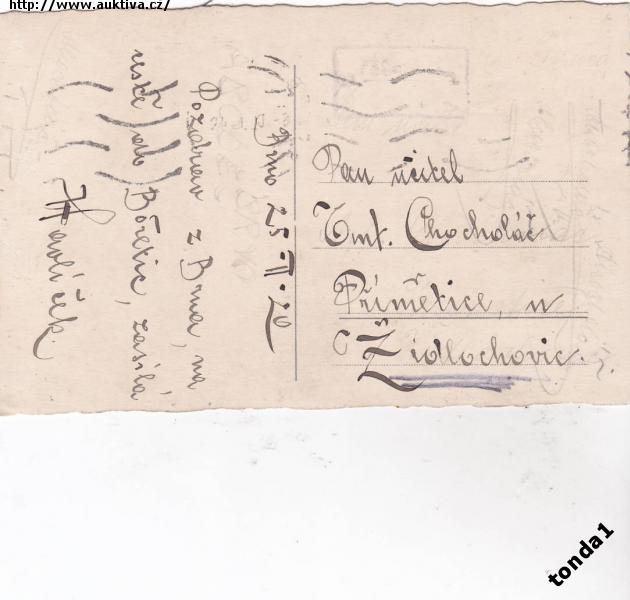 http://www.auktiva.cz/
Brno 25-II-26
Pozdrav z Brna, na
cestě do Bořetic, zasílá
Havlíček.
Pan učitel
Emf. Chocholáč
Přímětice, u
Židlochovic.
tonda1